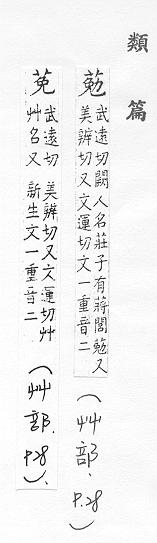 類篇
葂 武遠切闕人名莊子有蔣閭葂又
美辨切又文運切文一重音二
(艸部.P.28)
莬 武遠切 美辨切又文運切艸
艸名又 新生文一重音二
(艸部.P.28)、